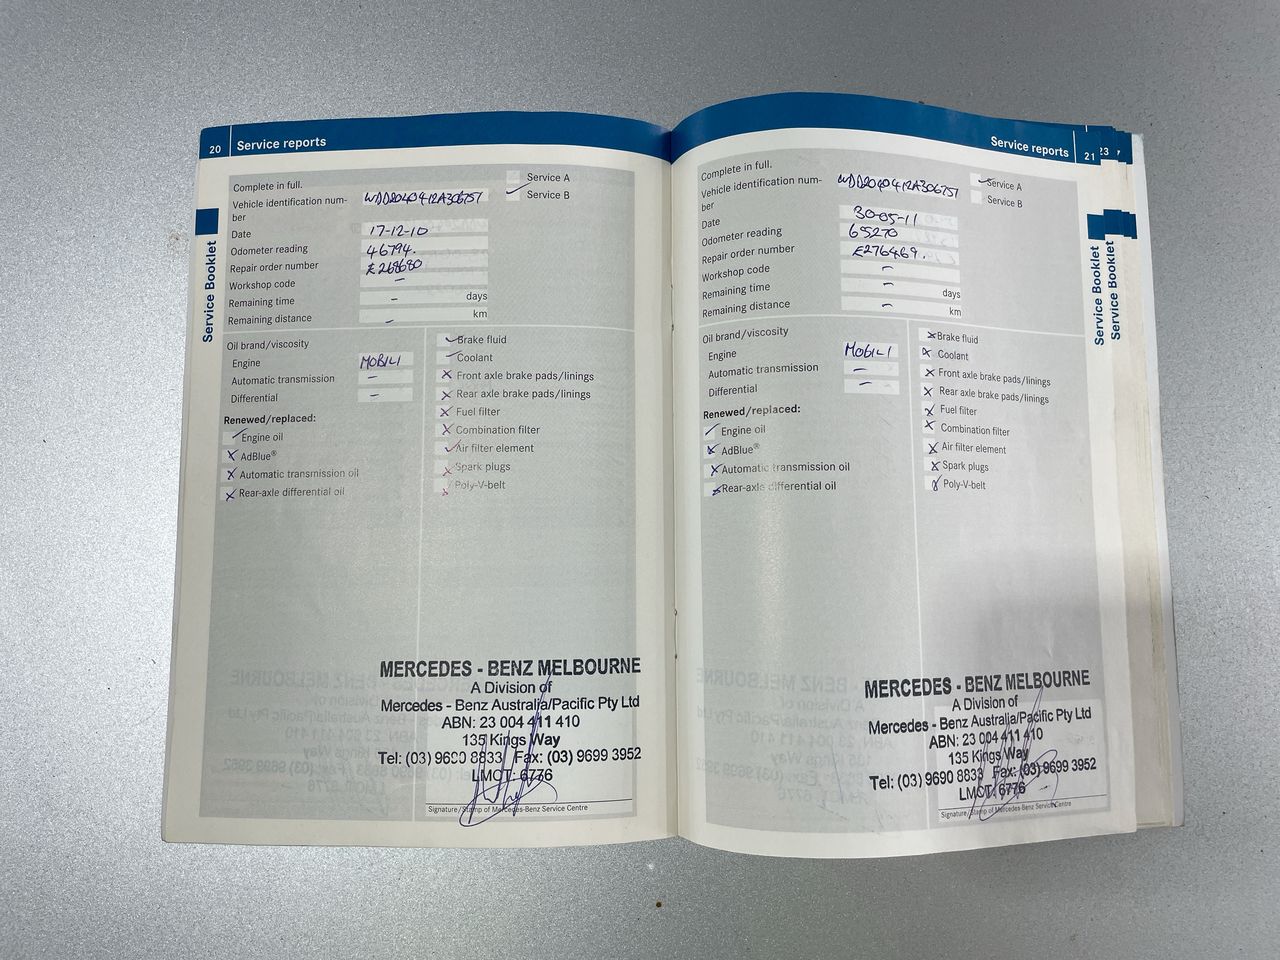 20 Service reports
Complete in full.
Service A
✓ Service B
Vehicle identification num-
ber WDD2040412A306757
Date 17-12-10
Odometer reading 46794.
Repair order number £268680
Workshop code –
Remaining time – days
Remaining distance – km
Oil brand/viscosity
Engine MOBIL1
Automatic transmission –
Differential –
Renewed/replaced:
✓ Engine oil
X AdBlue®
X Automatic transmission oil
X Rear-axle differential oil
✓ Brake fluid
✓ Coolant
X Front axle brake pads/linings
X Rear axle brake pads/linings
X Fuel filter
X Combination filter
✓ Air filter element
X Spark plugs
X Poly-V-belt
MERCEDES - BENZ MELBOURNE
A Division of
Mercedes - Benz Australia/Pacific Pty Ltd
ABN: 23 004 411 410
135 Kings Way
Tel: (03) 9690 8833 Fax: (03) 9699 3952
LMCT: 6776
Signature/Stamp of Mercedes-Benz Service Centre
Service Booklet
Service reports 21
23
Complete in full.
✓ Service A
Service B
Vehicle identification num-
ber WDD2040412A306757
Date 30-05-11
Odometer reading 65270
Repair order number £276469.
Workshop code –
Remaining time – days
Remaining distance – km
Oil brand/viscosity
Engine MOBIL1
Automatic transmission –
Differential –
Renewed/replaced:
✓ Engine oil
X AdBlue®
X Automatic transmission oil
X Rear-axle differential oil
X Brake fluid
X Coolant
X Front axle brake pads/linings
X Rear axle brake pads/linings
X Fuel filter
X Combination filter
X Air filter element
X Spark plugs
X Poly-V-belt
MERCEDES - BENZ MELBOURNE
A Division of
Mercedes - Benz Australia/Pacific Pty Ltd
ABN: 23 004 411 410
135 Kings Way
Tel: (03) 9690 8833 Fax: (03) 9699 3952
LMCT: 6776
Signature/Stamp of Mercedes-Benz Service Centre
Service Booklet
Service Booklet